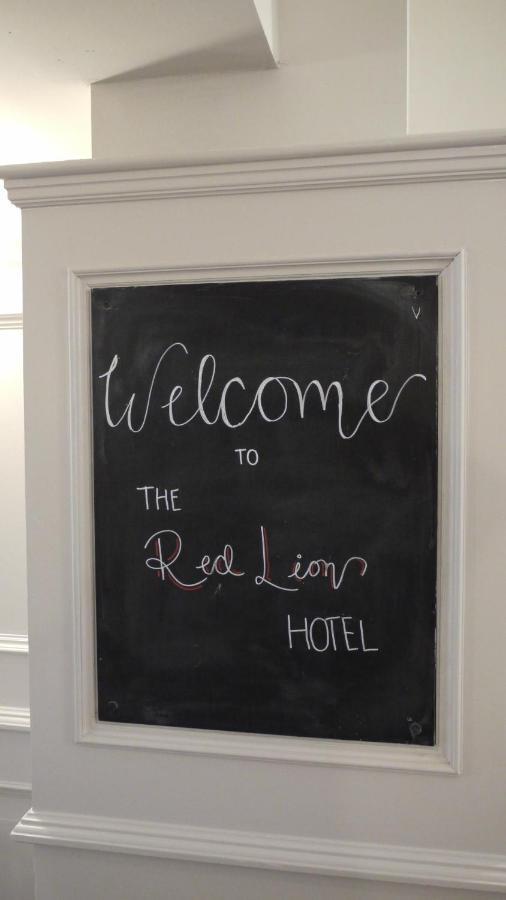 Welcome
TO
THE
Red Lion
HOTEL